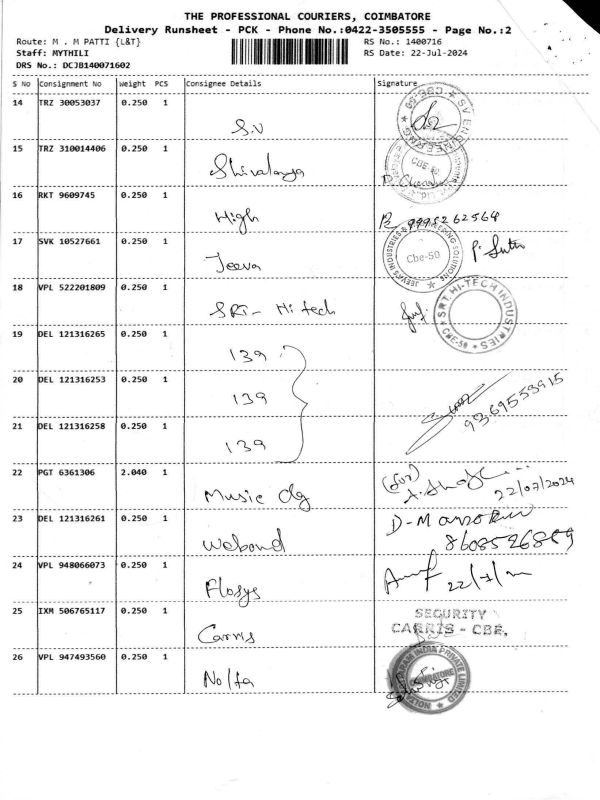 THE PROFESSIONAL COURIERS, COIMBATORE
Delivery Runsheet - PCK - Phone No.:0422-3505555 - Page No.:2
Route: M . M PATTI {L&T} RS No.: 1400716
Staff: MYTHILI RS Date: 22-Jul-2024
DRS No.: DCJB140071602
S No Consignment No Weight PCS Consignee Details Signature
14 TRZ 30053037 0.250 1 S.V
15 TRZ 310014406 0.250 1 Shivalaya
16 RKT 9609745 0.250 1 High 9995262564
17 SVK 10527661 0.250 1 Jeeva Cbe-50
18 VPL 522201809 0.250 1 SRI- Hi tech SRI. HI-TECH INDUSTRIES CBE-50
19 DEL 121316265 0.250 1 139
20 DEL 121316253 0.250 1 139 9369553915
21 DEL 121316258 0.250 1 139
22 PGT 6361306 2.040 1 Music dg 22/07/2024
23 DEL 121316261 0.250 1 Webond 8608526859
24 VPL 948066073 0.250 1 Flosys
25 IXM 506765117 0.250 1 Carris SECURITY
CARRIS - CBE.
26 VPL 947493560 0.250 1 Nolta COIMBATORE